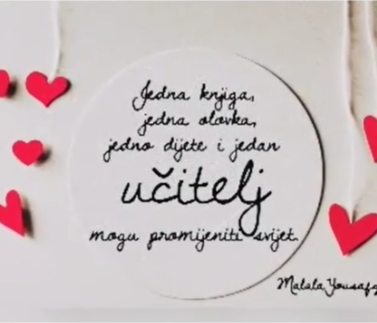 Jedna knjiga,
jedna olovka,
jedno dijete i jedan
učitelj
mogu promijeniti svijet.
Malala